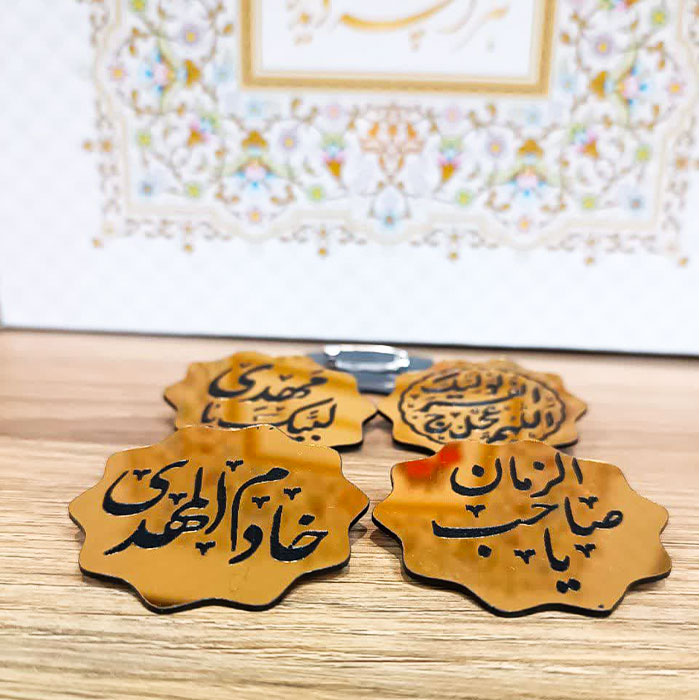 مهدی
لبیک یا
اللهم عجل
لولیک الفرج
خادم المهدی
یا صاحب
الزمان